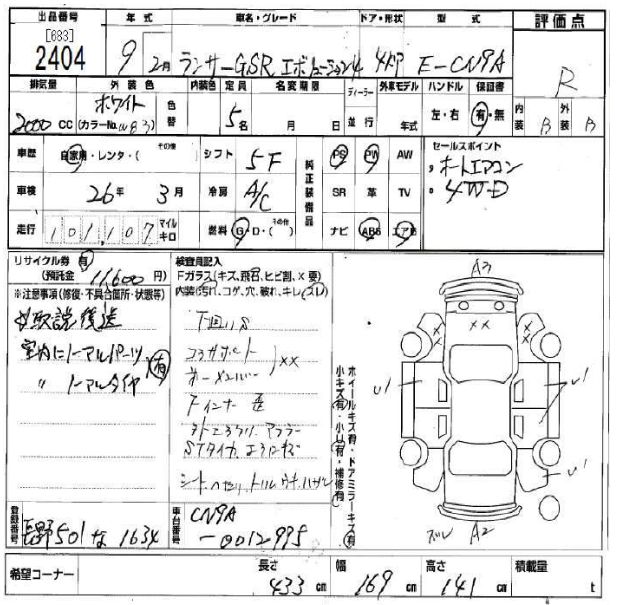 出品番号 年式 車名・グレード ドア・形状 型式 評価点
[683]
2404 9 2月 ランサーGSR エボリューション4 4ドア E-CN9A R
排気量 外装色 内装色 定員 名変期限 ディーラー 外車モデル ハンドル 保証書 内装 B 外装 B
2000 CC ホワイト 色替 5名 月 日 並行 年式 左・右 有・無
(カラーNo. W83)
車歴 自家用・レンタ・(その他) シフト 5F 純正装備品 PS PW AW セールスポイント
車検 26年 3月 冷房 A/C SR 革 TV ・オートエアコン
走行 101,107 マイル キロ 燃料 G・D・(その他) ナビ ABS エアB ・4WD
リサイクル券 有
(預託金 11,600 円)
※注意事項(修復・不具合箇所・状態等)
取説後送
室内にノーマルパーツ
〃 ノーマルタイヤ 有
検査員記入
Fガラス(キズ、飛石、ヒビ割、X要)
内装(汚れ、コゲ、穴、破れ、キレ、ズレ)
下回りS
コラムサポート
XX
Fインナー
STタイカ
ホイールキズ有・ドアミラーキズ有
小キズ有・小U有・補修有
A3
XX
U1
U1
U1
ズレ A2
登録番号 長野501な1634 車台番号 CN9A
-0012995
希望コーナー 長さ 433 cm 幅 169 cm 高さ 141 cm 積載量 t